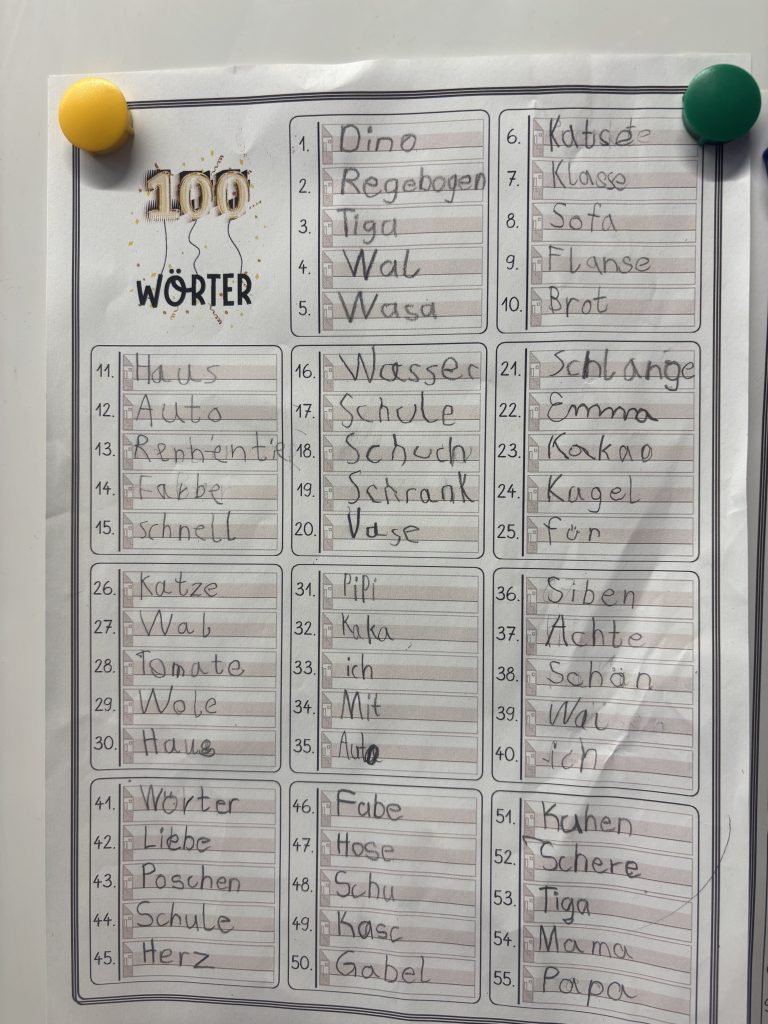 100
WÖRTER
1. Dino
2. Regebogen
3. Tiga
4. Wal
5. Wasa
6. Katsee
7. Klasse
8. Sofa
9. Flanse
10. Brot
11. Haus
12. Auto
13.
14. Farbe
15. schnell
16. Wasser
17. Schule
18. Schuch
19. Schrank
20. Vase
21. Schlange
22. Emma
23. Kakao
24. Kagel
25. för
26. Katze
27. Wal
28. Tomate
29. Wole
30. Haus
31. PiPi
32. Kaka
33. ich
34. Mit
35. Auto
36. Siben
37. Achte
38. Schän
39. Wai
40. ich
41. Wörter
42. Liebe
43. Poschen
44. Schule
45. Herz
46. Fabe
47. Hose
48. Schu
49. Kasc
50. Gabel
51. Kuhen
52. Schere
53. Tiga
54. Mama
55. Papa